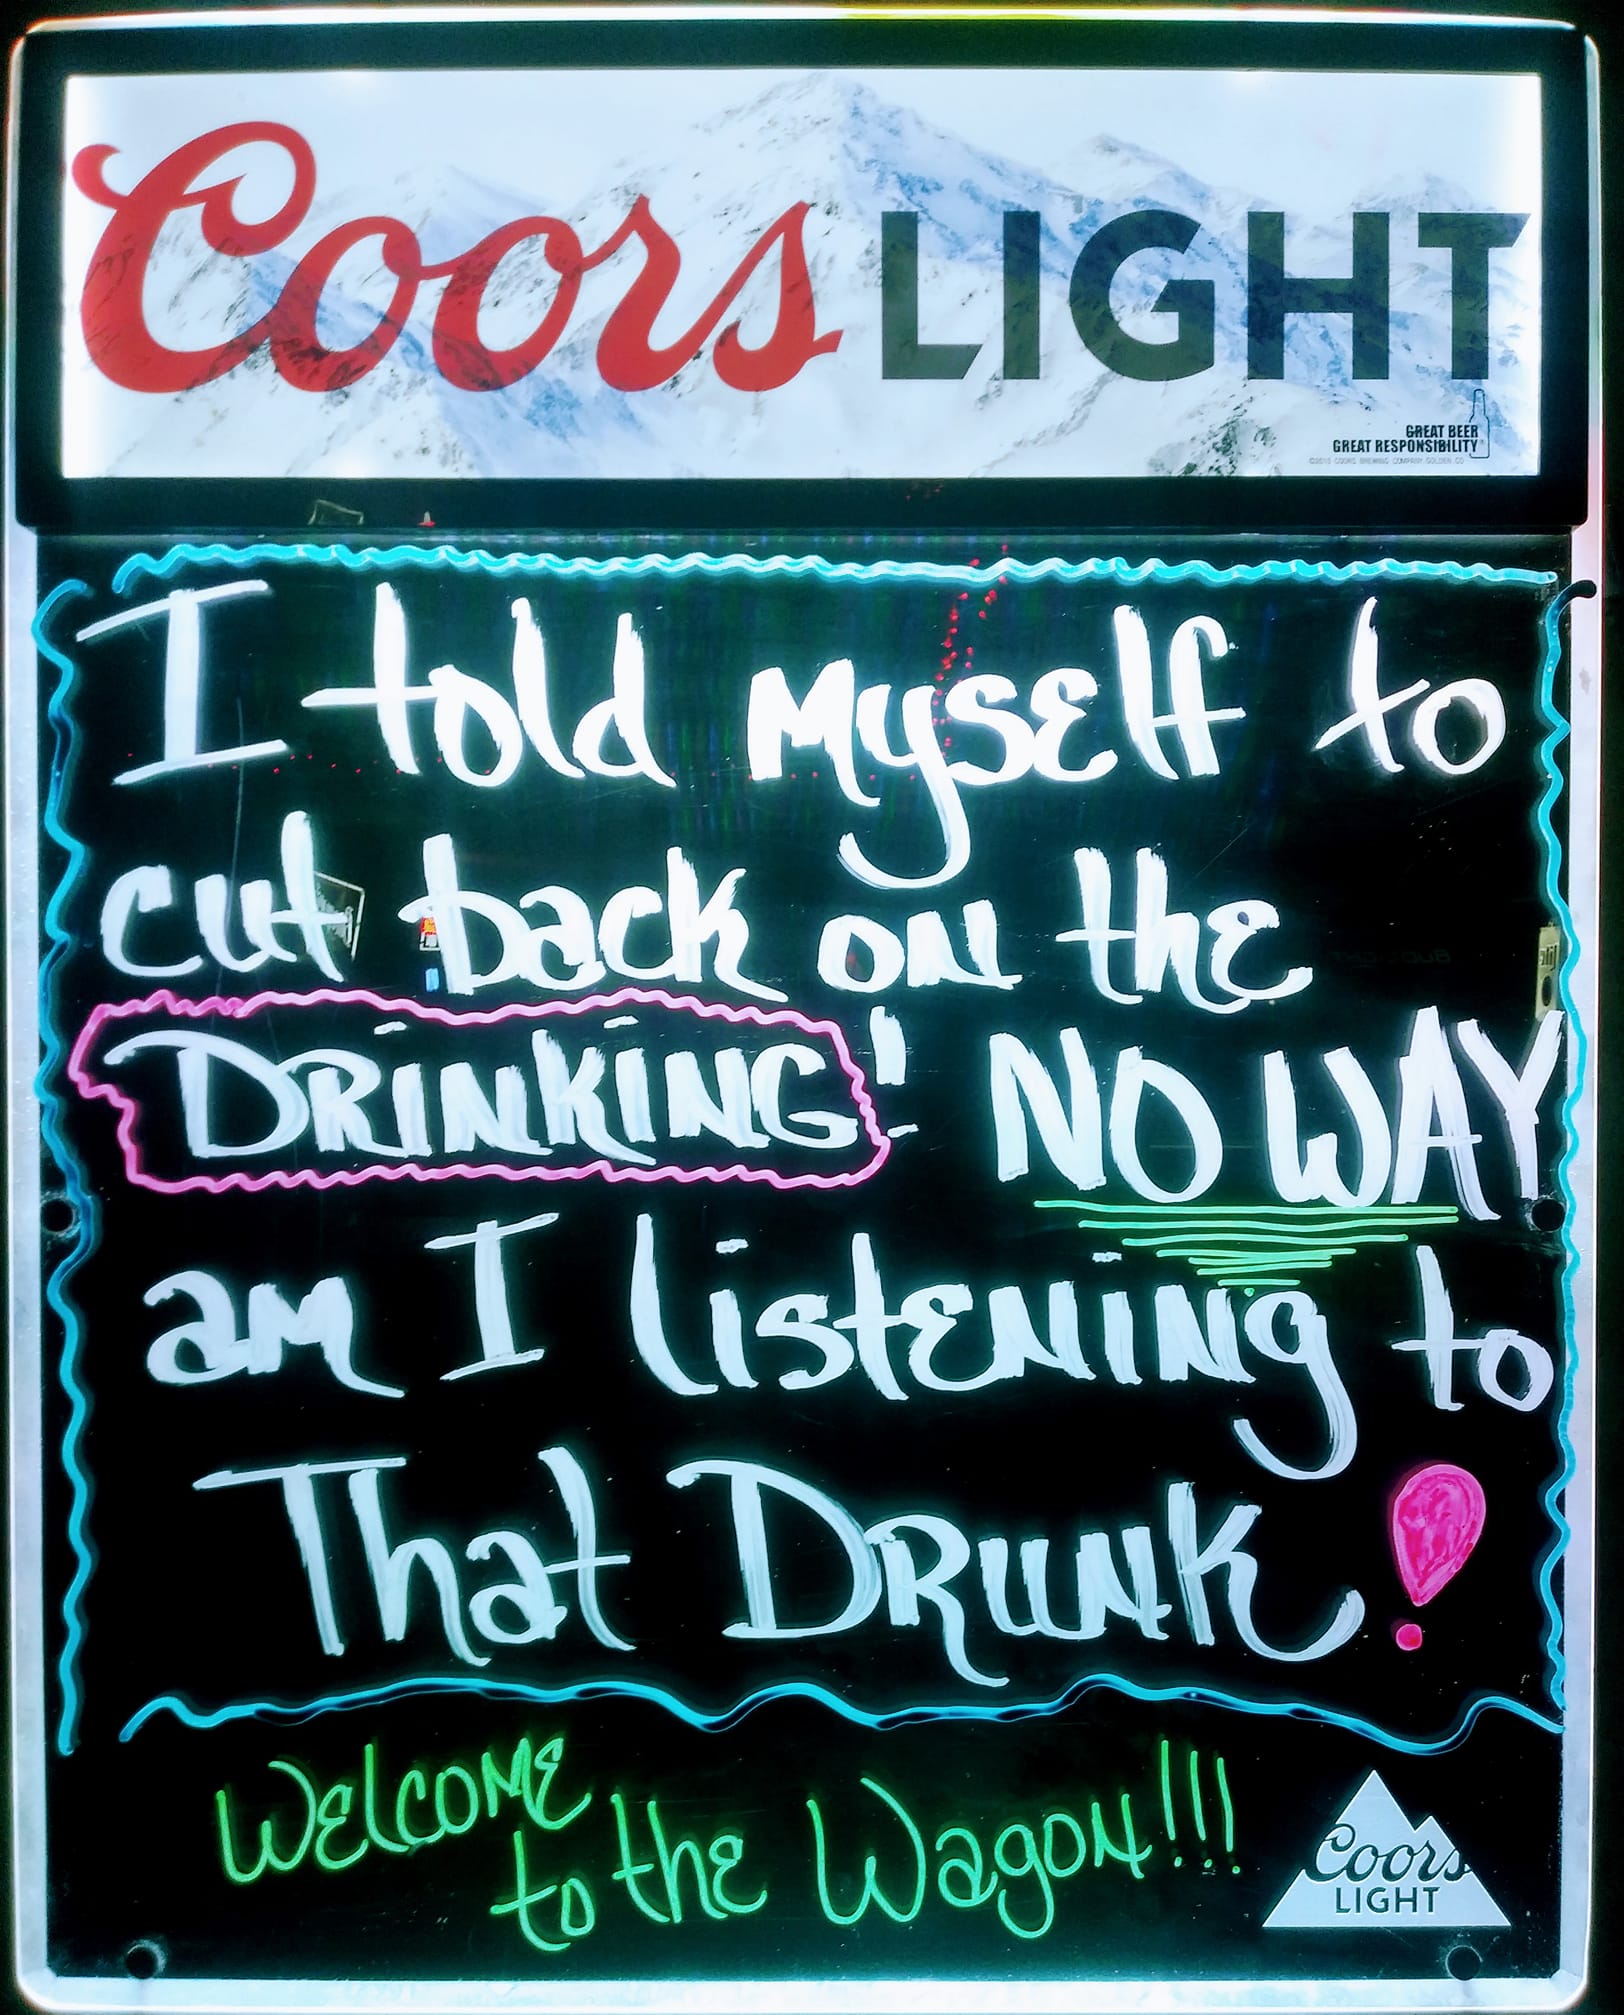 Coors LIGHT
GREAT BEER
GREAT RESPONSIBILITY
I told myself to
cut back on the
DRiNKiNG! NO WAY
am I listening to
That DRUNK!
WELCOME
to the Wagon!!!
Coors
LIGHT